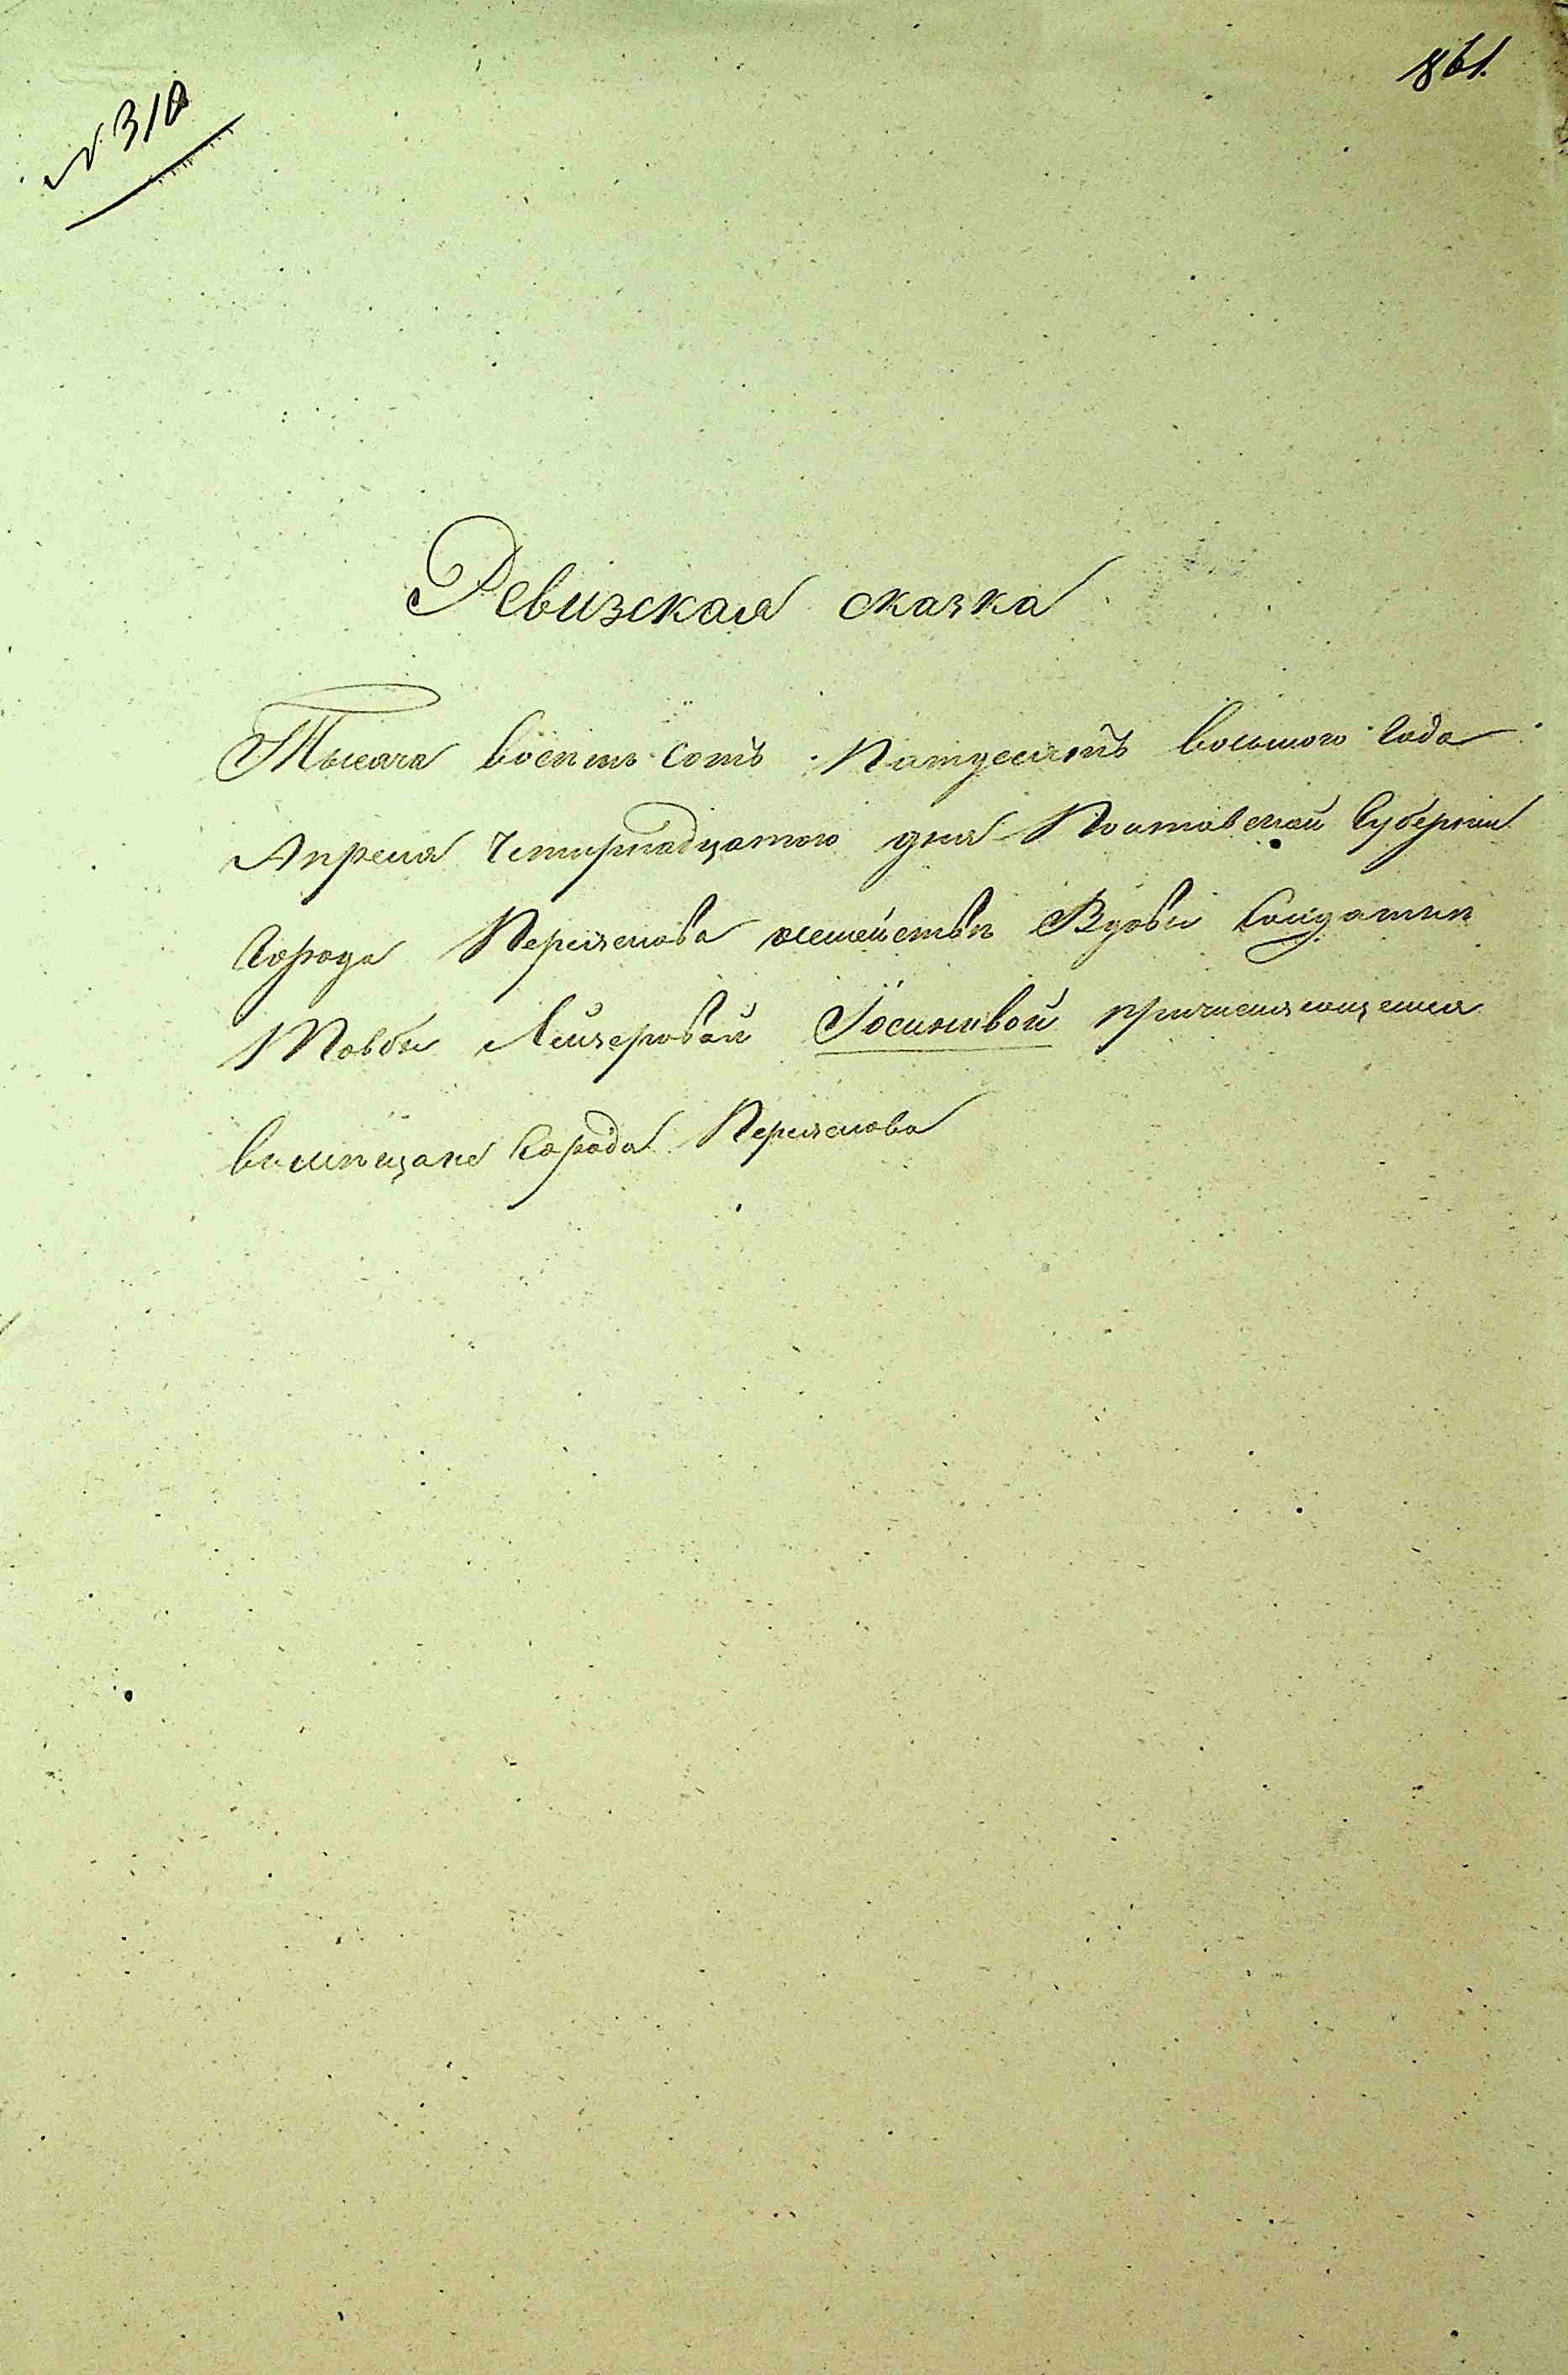 № 310
861.
Ревизская сказка
Тысеча восемь сотъ Пятдесятъ восьмого года
Апреля Четирнадцатого дня Полтавской Губернии
Города Переяслова семействѣ Вдовы Солдатки
Товбы Лейзеровой Іосиповой причисляющемся
вмѣщане Города Переяслова